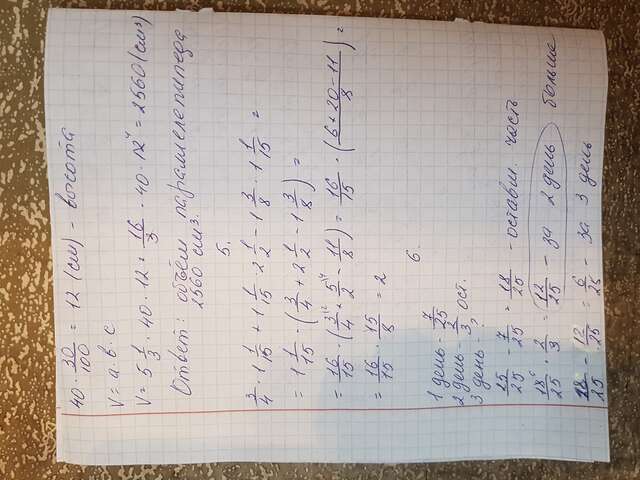 40 · 30/100 = 12 (см) - высота
V = a · в · c
V = 5 1/3 · 40 · 12 = 16/3 · 40 · 12⁴ = 2560 (см³)
Ответ: объём параллелепипеда
2560 см³.
5.
3/4 · 1 1/15 + 1 1/15 · 2 1/2 - 1 3/8 · 1 1/15 =
= 1 1/15 · (3/4 + 2 1/2 - 1 3/8) =
= 16/15 · (3/4 + 5/2 - 11/8) = 16/15 · (6 + 20 - 11/8) =
= 16/15 · 15/8 = 2
6.
1 день - 7/25
2 день - 2/3 ост.
3 день - ?
25/25 - 7/25 = 18/25 - оставш. часть
18⁶/25 · 2/3 = 12/25 - за 2 день больше
18/25 - 12/25 = 6/25 - за 3 день